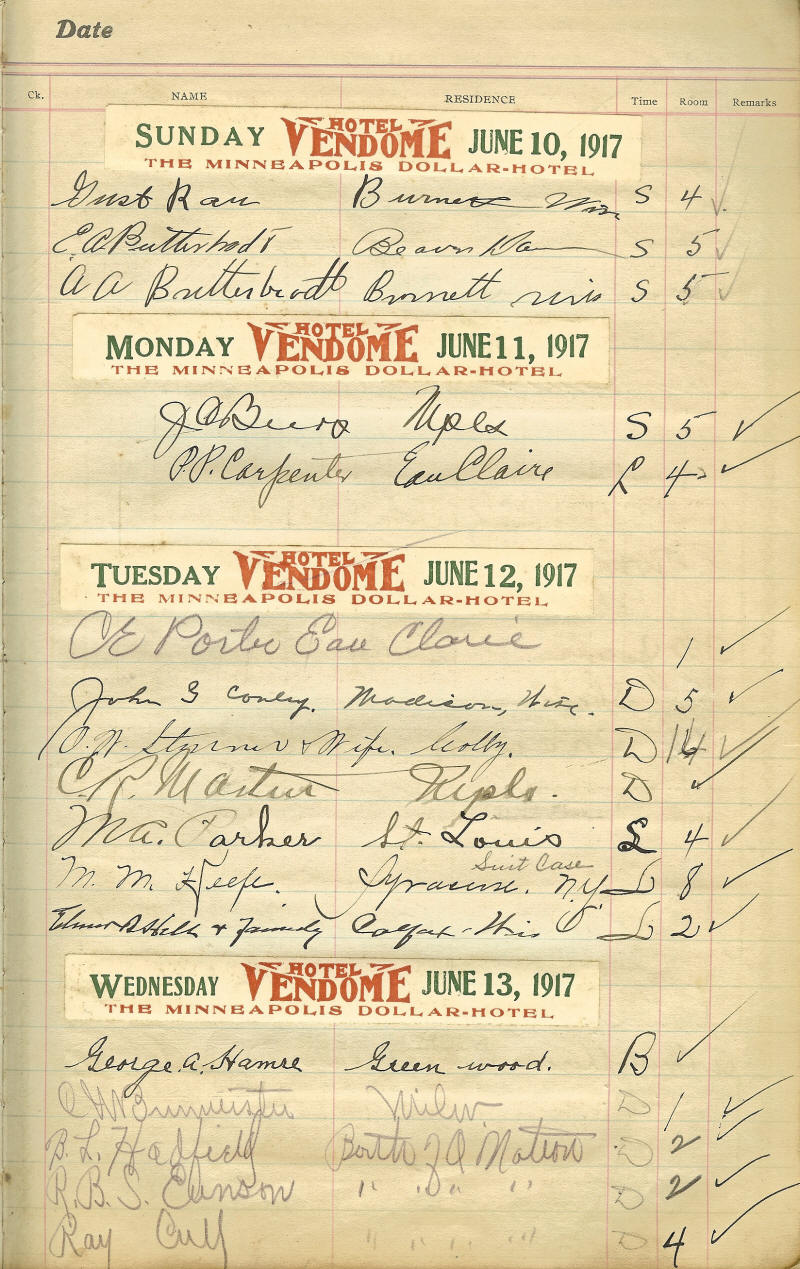 Date
Ck. NAME RESIDENCE Time Room Remarks
SUNDAY HOTEL VENDOME JUNE 10, 1917
THE MINNEAPOLIS DOLLAR-HOTEL
Gust Rau Burnett Wis S 4
E A Butterbrodt Beaver Dam S 5
A A Butterbrodt Burnett Wis S 5
MONDAY HOTEL VENDOME JUNE 11, 1917
THE MINNEAPOLIS DOLLAR-HOTEL
Mpls S 5
P.P. Carpenter Eau Claire L 4
TUESDAY HOTEL VENDOME JUNE 12, 1917
THE MINNEAPOLIS DOLLAR-HOTEL
C E Porter Eau Clarie 1
John G Conley. Madison, Wisc. D 5
& Wife. Colby. D
C. R. Martin Mpls. D
M A. Parker St. Louis L 4
Suit Case
M. M. Keefe. Syracuse. N.Y. L 8
& Family Colfax - Wis L 2
WEDNESDAY HOTEL VENDOME JUNE 13, 1917
THE MINNEAPOLIS DOLLAR-HOTEL
George. A. Hamre Green wood. B
Milw. D 1
B. L. Hadfield D 2
R. B. S. Eunson " " " D 2
Ray " " " " D 4